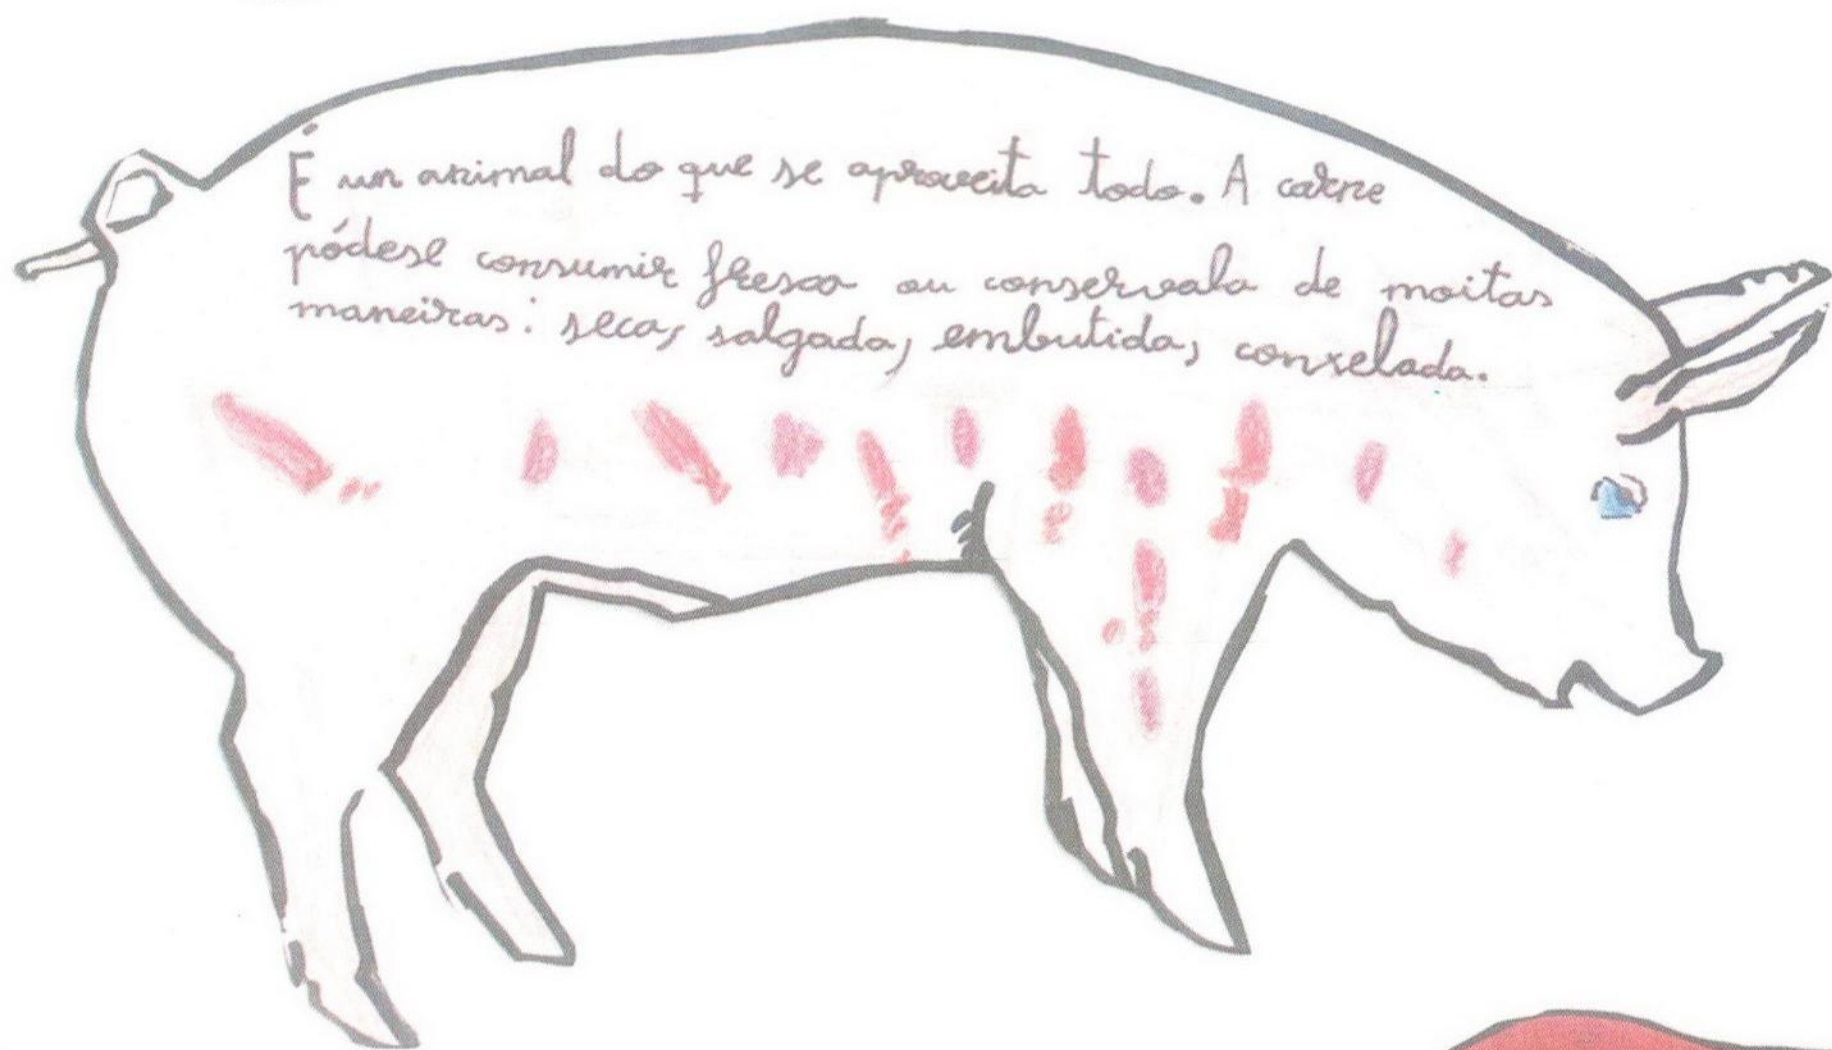 É un animal do que se aproveita todo. A carne
pódese consumir fresca ou conservala de moitas
maneiras: seca, salgada, embutida, conxelada.